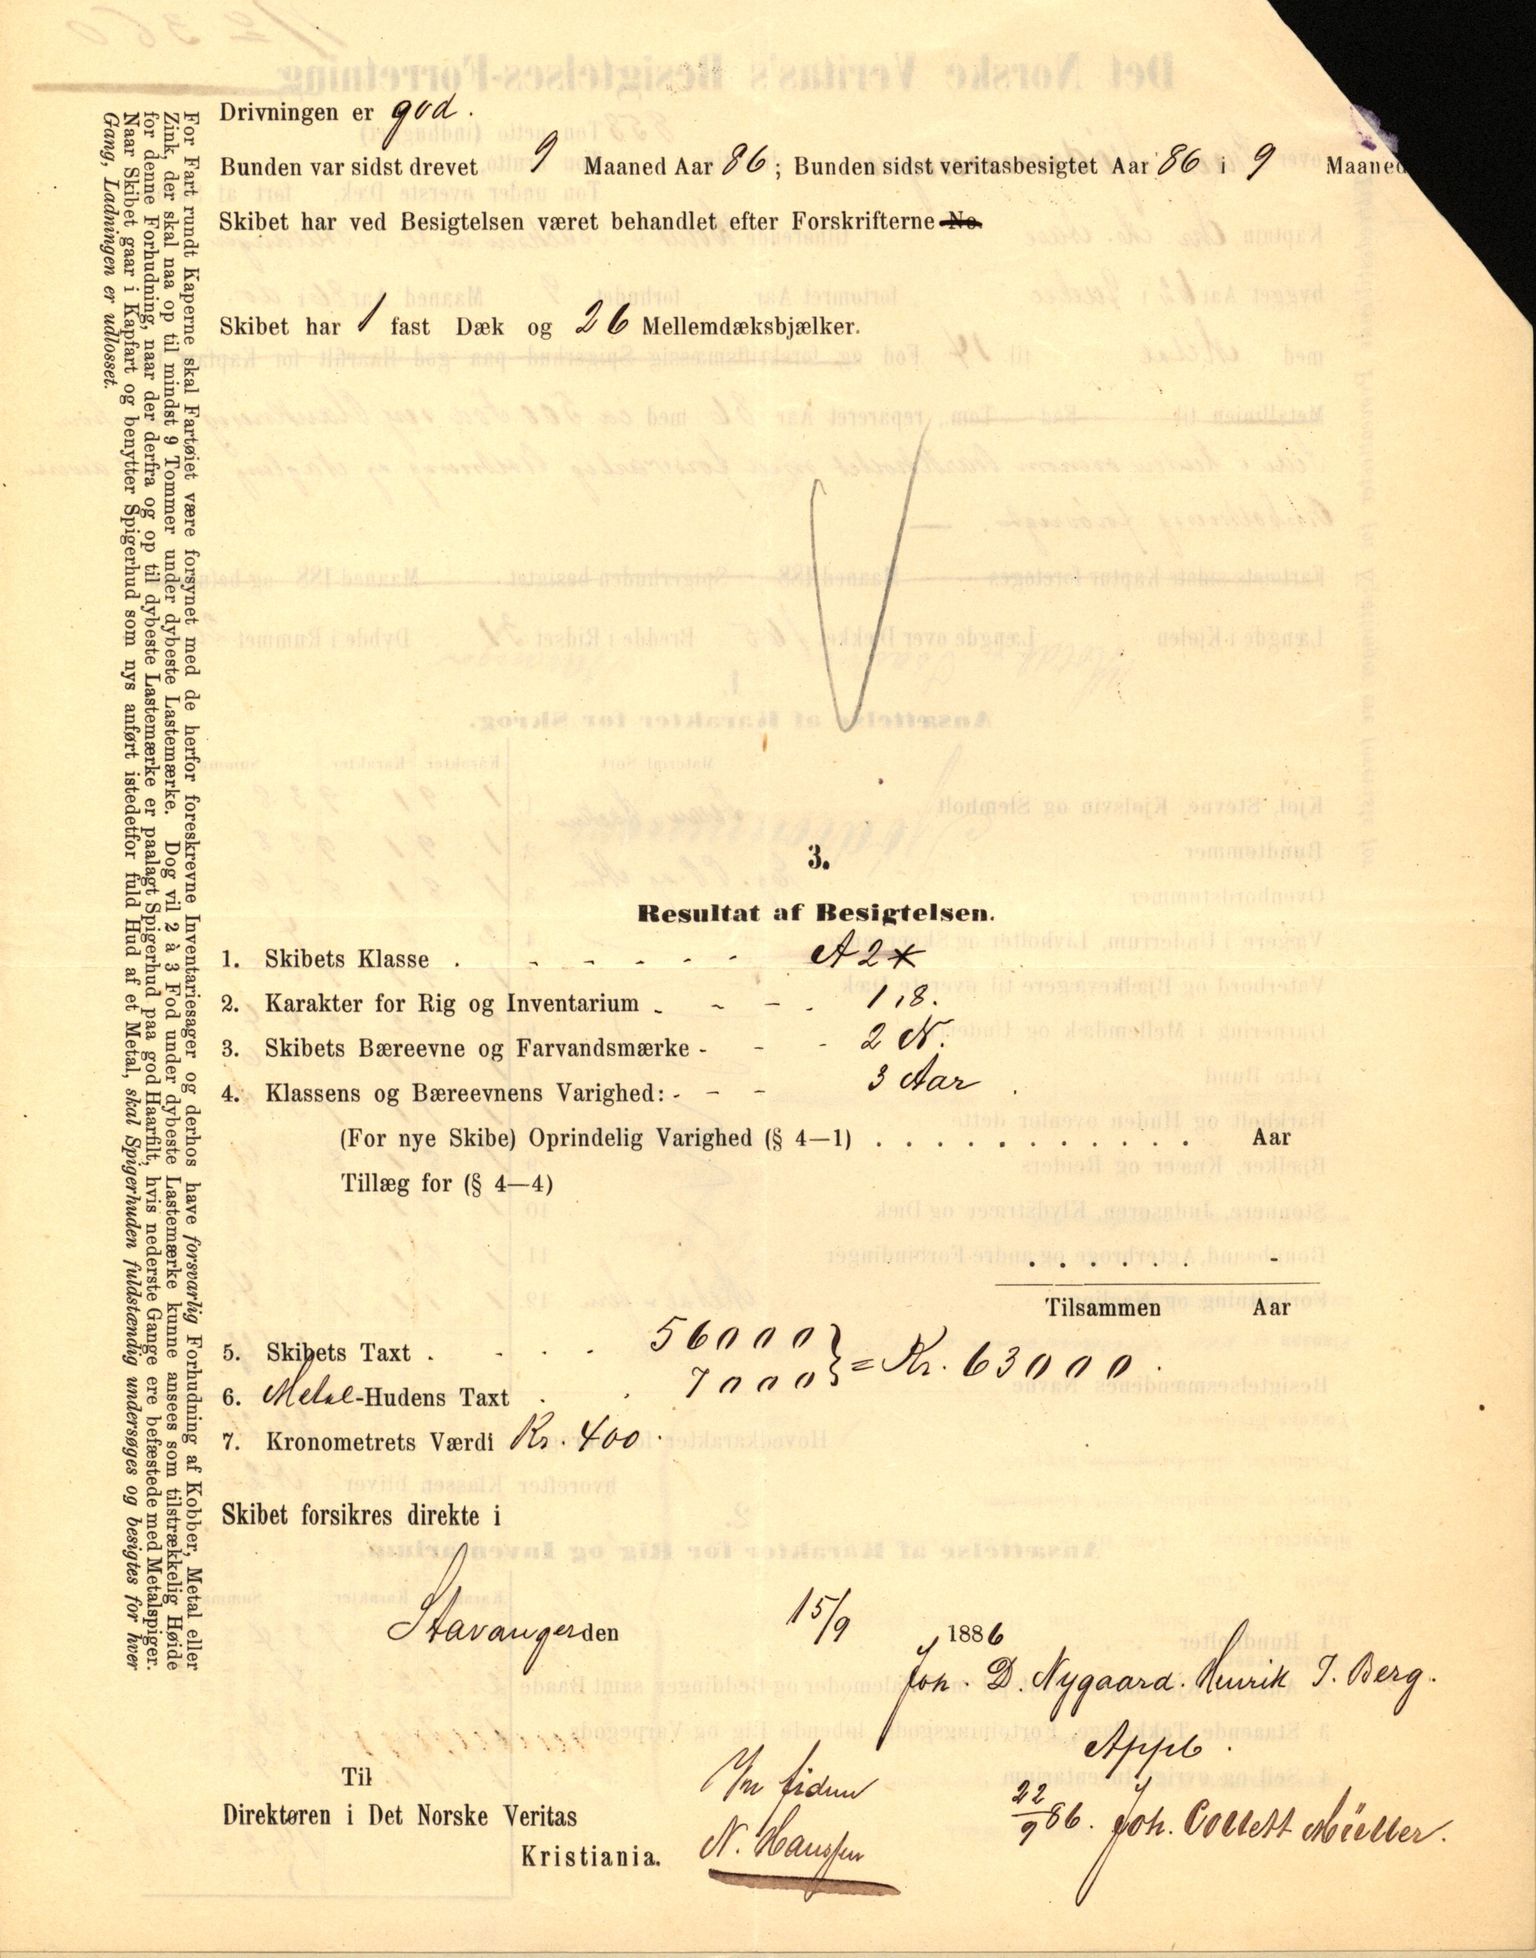 Drivningen er god.
Bunden var sidst drevet 9 Maaned Aar 86; Bunden sidst veritasbesigtet Aar 86 i 9 Maaned
Skibet har ved Besigtelsen været behandlet efter Forskrifterne No.
Skibet har 1 fast Dæk og 26 Mellemdæksbjælker.
3.
Resultat af Besigtelsen.
1. Skibets Klasse . - - - - - A 2 *
2. Karakter for Rig og Inventarium . - - . 1,8.
3. Skibets Bæreevne og Farvandsmærke - - - 2 N.
4. Klassens og Bæreevnens Varighed: - - - 3 Aar .
(For nye Skibe) Oprindelig Varighed (§ 4—1) . . . . . . . . . . . . Aar
Tillæg for (§ 4—4)
. . . . . . -
Tilsammen Aar
5. Skibets Taxt . - . . . 56000
6. Metal-Hudens Taxt . . 7000 } = Kr. 63000.
7. Kronometrets Værdi Kr. 400.
Skibet forsikres direkte i
Stavanger den 15/9 1886
Joh. D. Nygaard. Henrik J. Berg.
Appb.
Til In fidem 22/9 86. Joh. Collett Müller.
Direktøren i Det Norske Veritas N. Hanssen
Kristiania.
For Fart rundt Kaperne skal Fartøiet være forsynet med de herfor foreskrevne Inventariesager og derhos have forsvarlig Forhudning af Kobber, Metal eller
Zink, der skal naa op til mindst 9 Tommer under dybeste Lastemærke. Dog vil 2 à 3 Fod under dybeste Lastemærke kunne ansees som tilstrækkelig Høide
for denne Forhudning, naar der derfra og op til dybeste Lastemærke er paalagt Spigerhud paa god Haarfilt, hvis nederste Gange ere befæstede med Metalspiger.
Naar Skibet gaar i Kapfart og benytter Spigerhud som nys anført istedetfor fuld Hud af et Metal, skal Spigerhuden fuldstændig undersøges og besigtes for hver
Gang, Ladningen er udlosset.